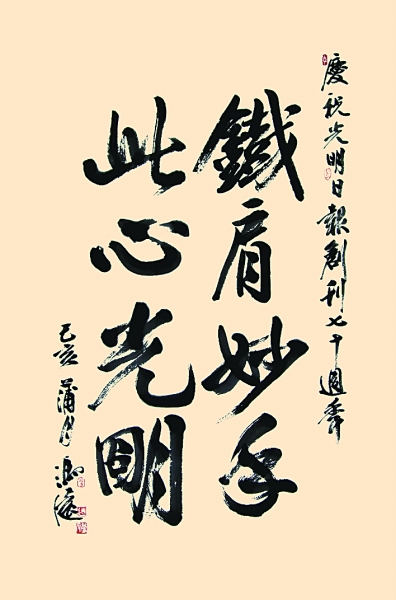 慶祝光明日報創刊七十週年
鐵肩妙手
此心光朙
己亥蒲月